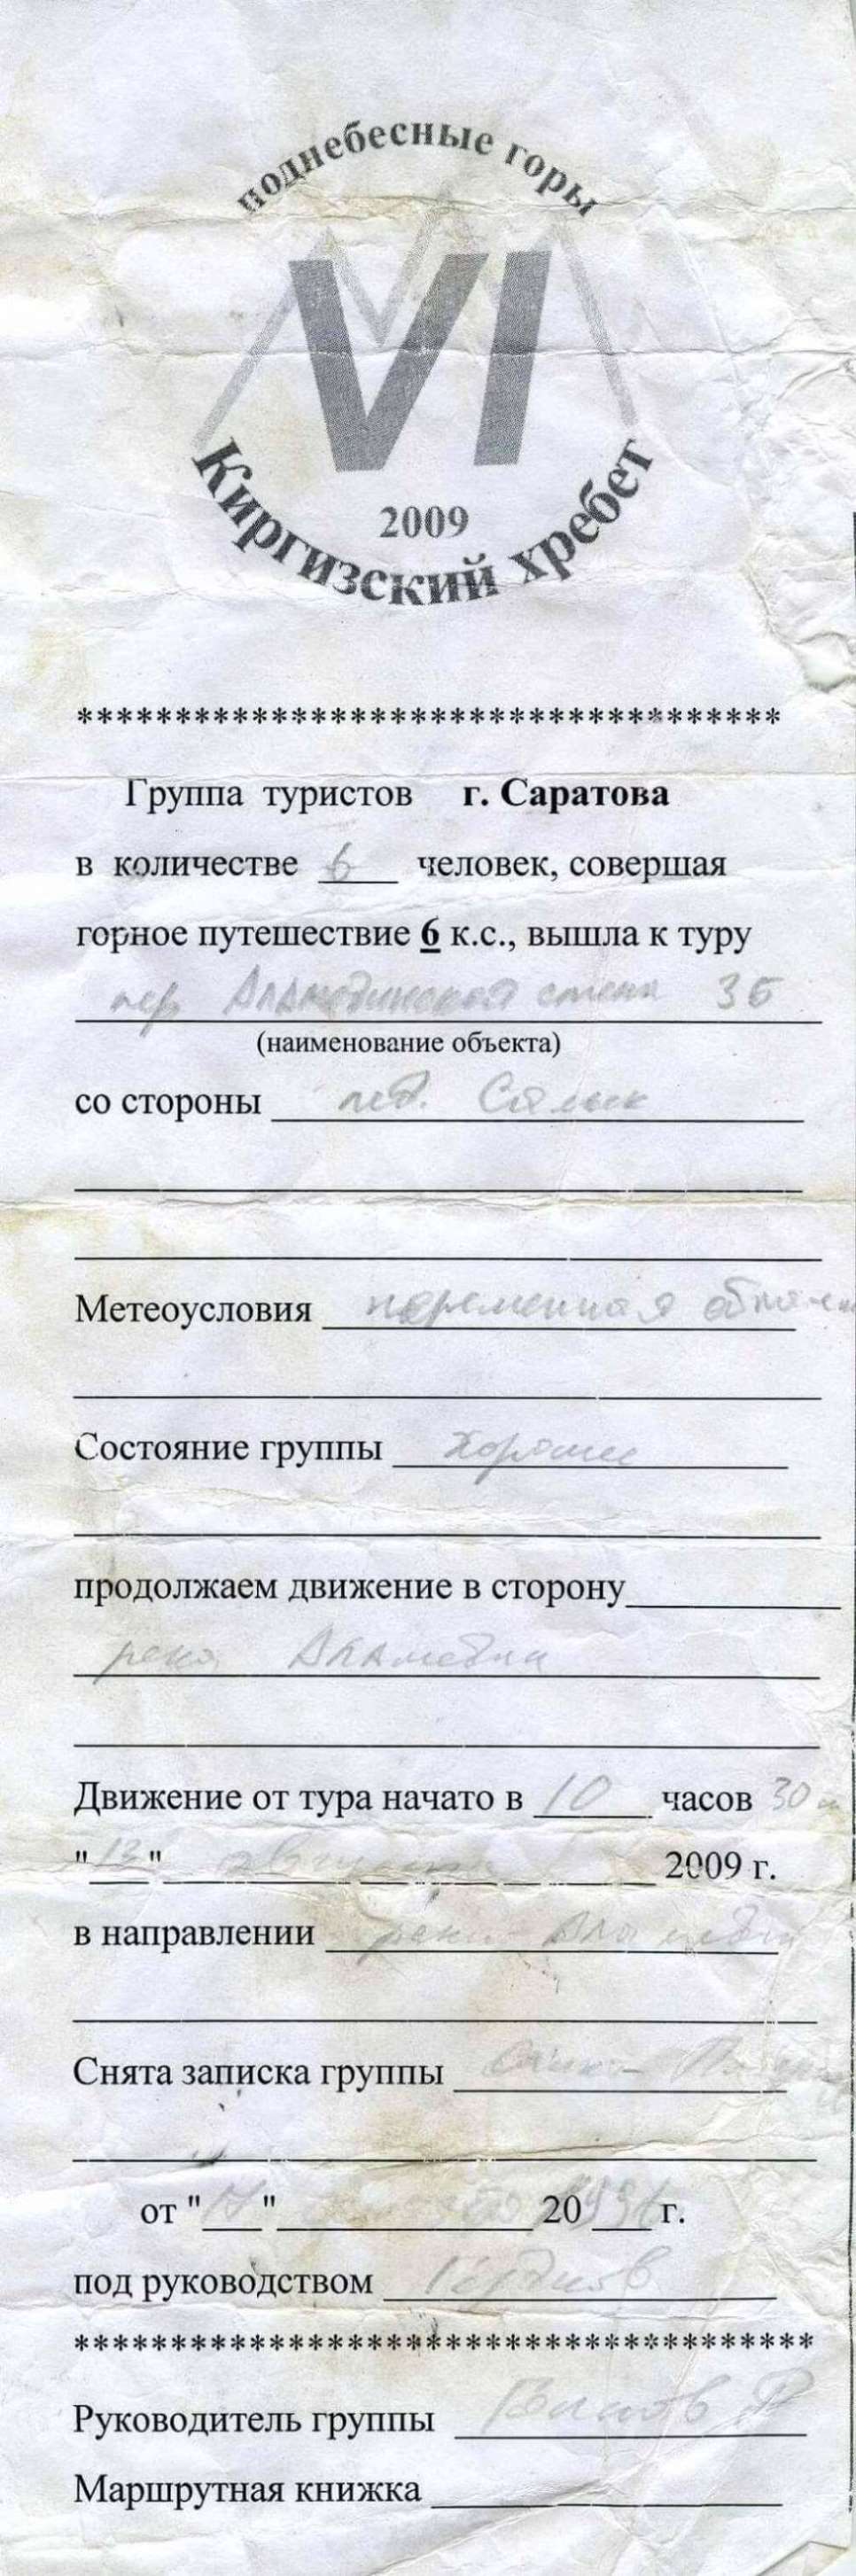 поднебесные горы
VI
2009
Киргизский хребет
************************************
Группа туристов г. Саратова
в количестве 6 человек, совершая
горное путешествие 6 к.с., вышла к туру
пер. Аламединская стена 3Б
(наименование объекта)
со стороны лед. Салык
Метеоусловия переменная
Состояние группы хорошее
продолжаем движение в сторону
реки Аламедин
Движение от тура начато в 10 часов 30
"13" августа 2009 г.
в направлении реки Аламедин
Снята записка группы Санкт-
от " " 20 г.
под руководством
**************************************
Руководитель группы
Маршрутная книжка